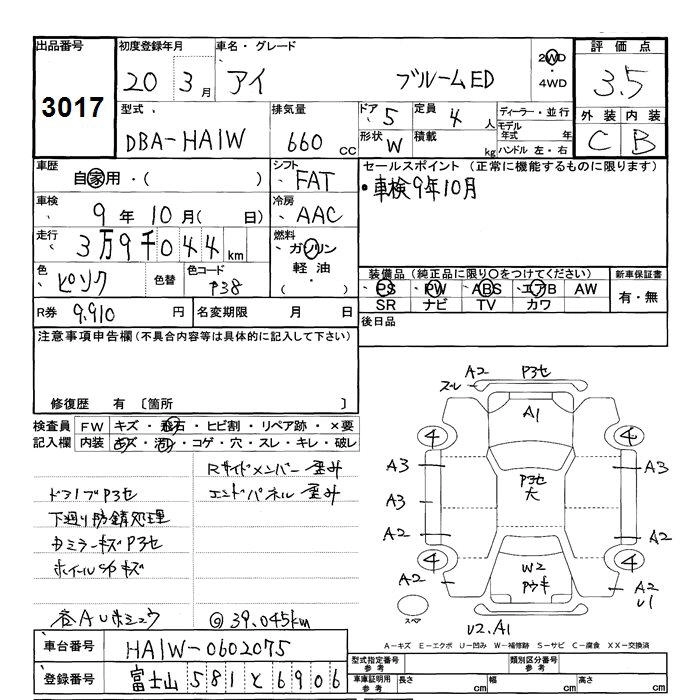 出品番号 初度登録年月 車名・グレード 2WD 評価点
3017 20 3月 アイ ブルームED ・4WD 3.5
型式 排気量 ドア 5 定員 4人 ディーラー・並行 外装 内装
DBA-HA1W 660 CC 形状 W 積載 kg モデル年式 年 C B
ハンドル 左・右
車歴 自家用・( ) シフト FAT セールスポイント (正常に機能するものに限ります)
車検 9年10月( 日) 冷房 AAC ・車検9年10月
走行 3万9千044km 燃料 ガソリン
軽油
・( )
色 ピンク 色替 色コード P38 装備品 (純正品に限り○をつけてください) 新車保証書
PS PW ABS エアB AW 有・無
SR ナビ TV カワ
R券 9,910円 名変期限 月 日 後日品
注意事項申告欄 (不具合内容等は具体的に記入して下さい)
修復歴 有 〔箇所 〕
検査員 FW キズ・飛石・ヒビ割・リペア跡・×要
記入欄 内装 キズ・汚レ・コゲ・穴・スレ・キレ・破レ
Rサイドメンバー歪み
ドライブP3セ エンドパネル歪み
下廻り防錆処理
カミラーキズP3セ
ホイール キズ
39,045km
A2 P3セ
スレ
A1
4 4
A3 A3
P3セ
大
A3
A2 A2
W2
4 4
A2 A2
U1
スペア
U2.A1
A-キズ E-エクボ U-凹み W-補修跡 S-サビ C-腐食 XX-交換済
車台番号 HA1W-0602075 型式指定番号 参考 類別区分番号 参考
登録番号 富士山 581 と 6906 車庫証明用 参考 長さ cm 幅 cm 高さ cm